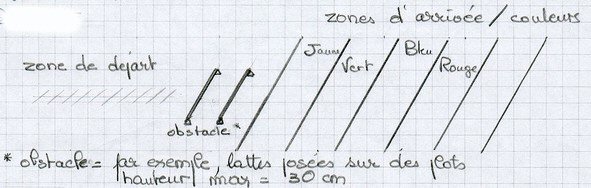 zones d'arrivée / couleurs
zone de départ
Jaune
Vert
Bleu
Rouge
obstacle *
* obstacle = par exemple, lattes posées sur des plots
hauteur max = 30 cm